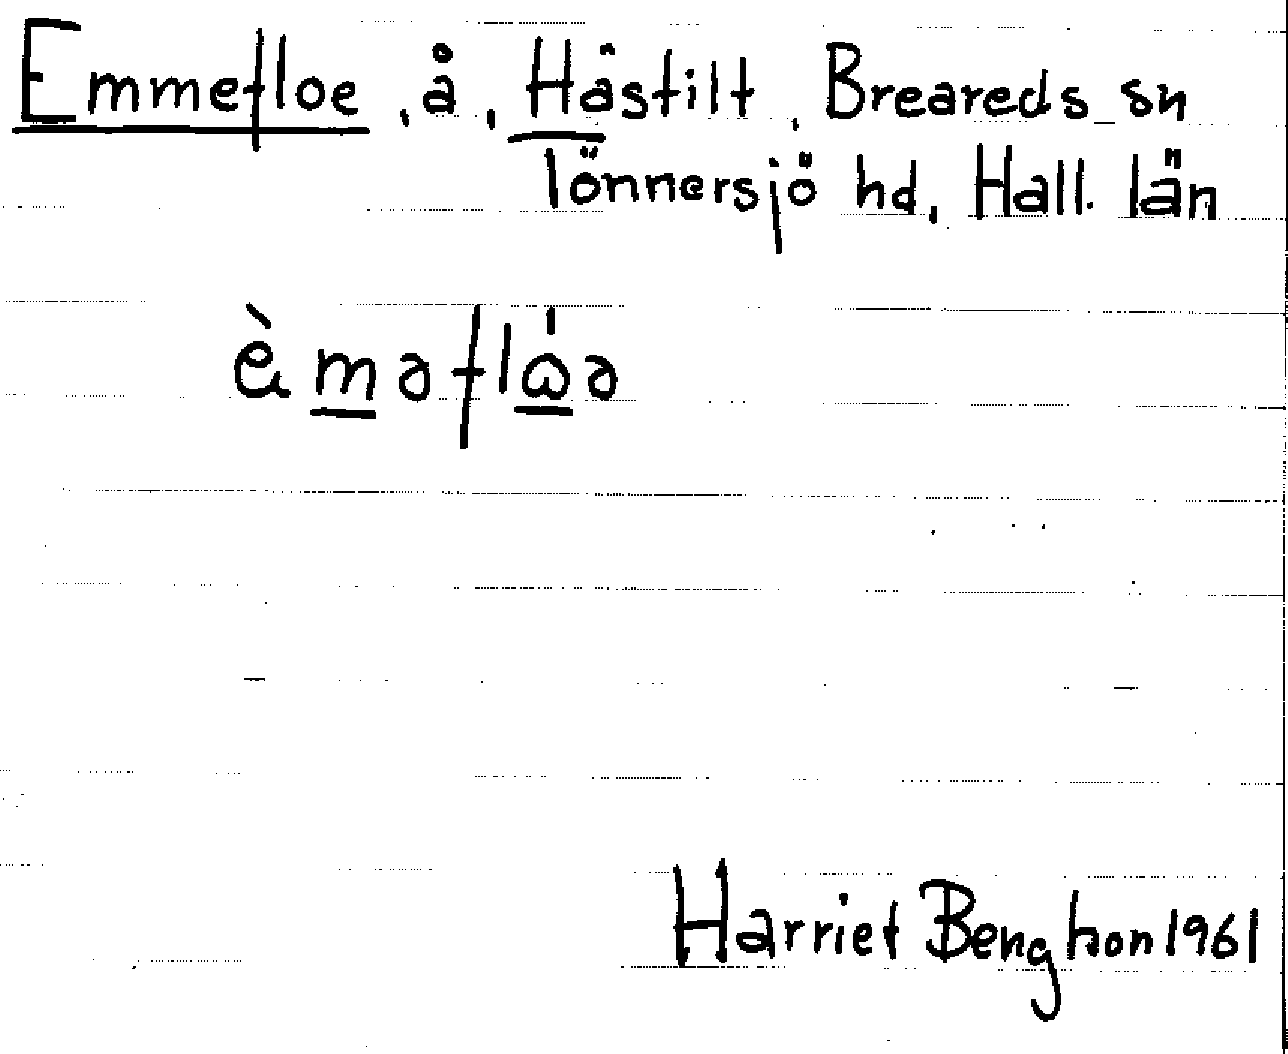 Emmefloe, å, Hästilt, Breareds sn
Tönnersjö hd, Hall. län
èməflω̇ə
Harriet Benghon 1961